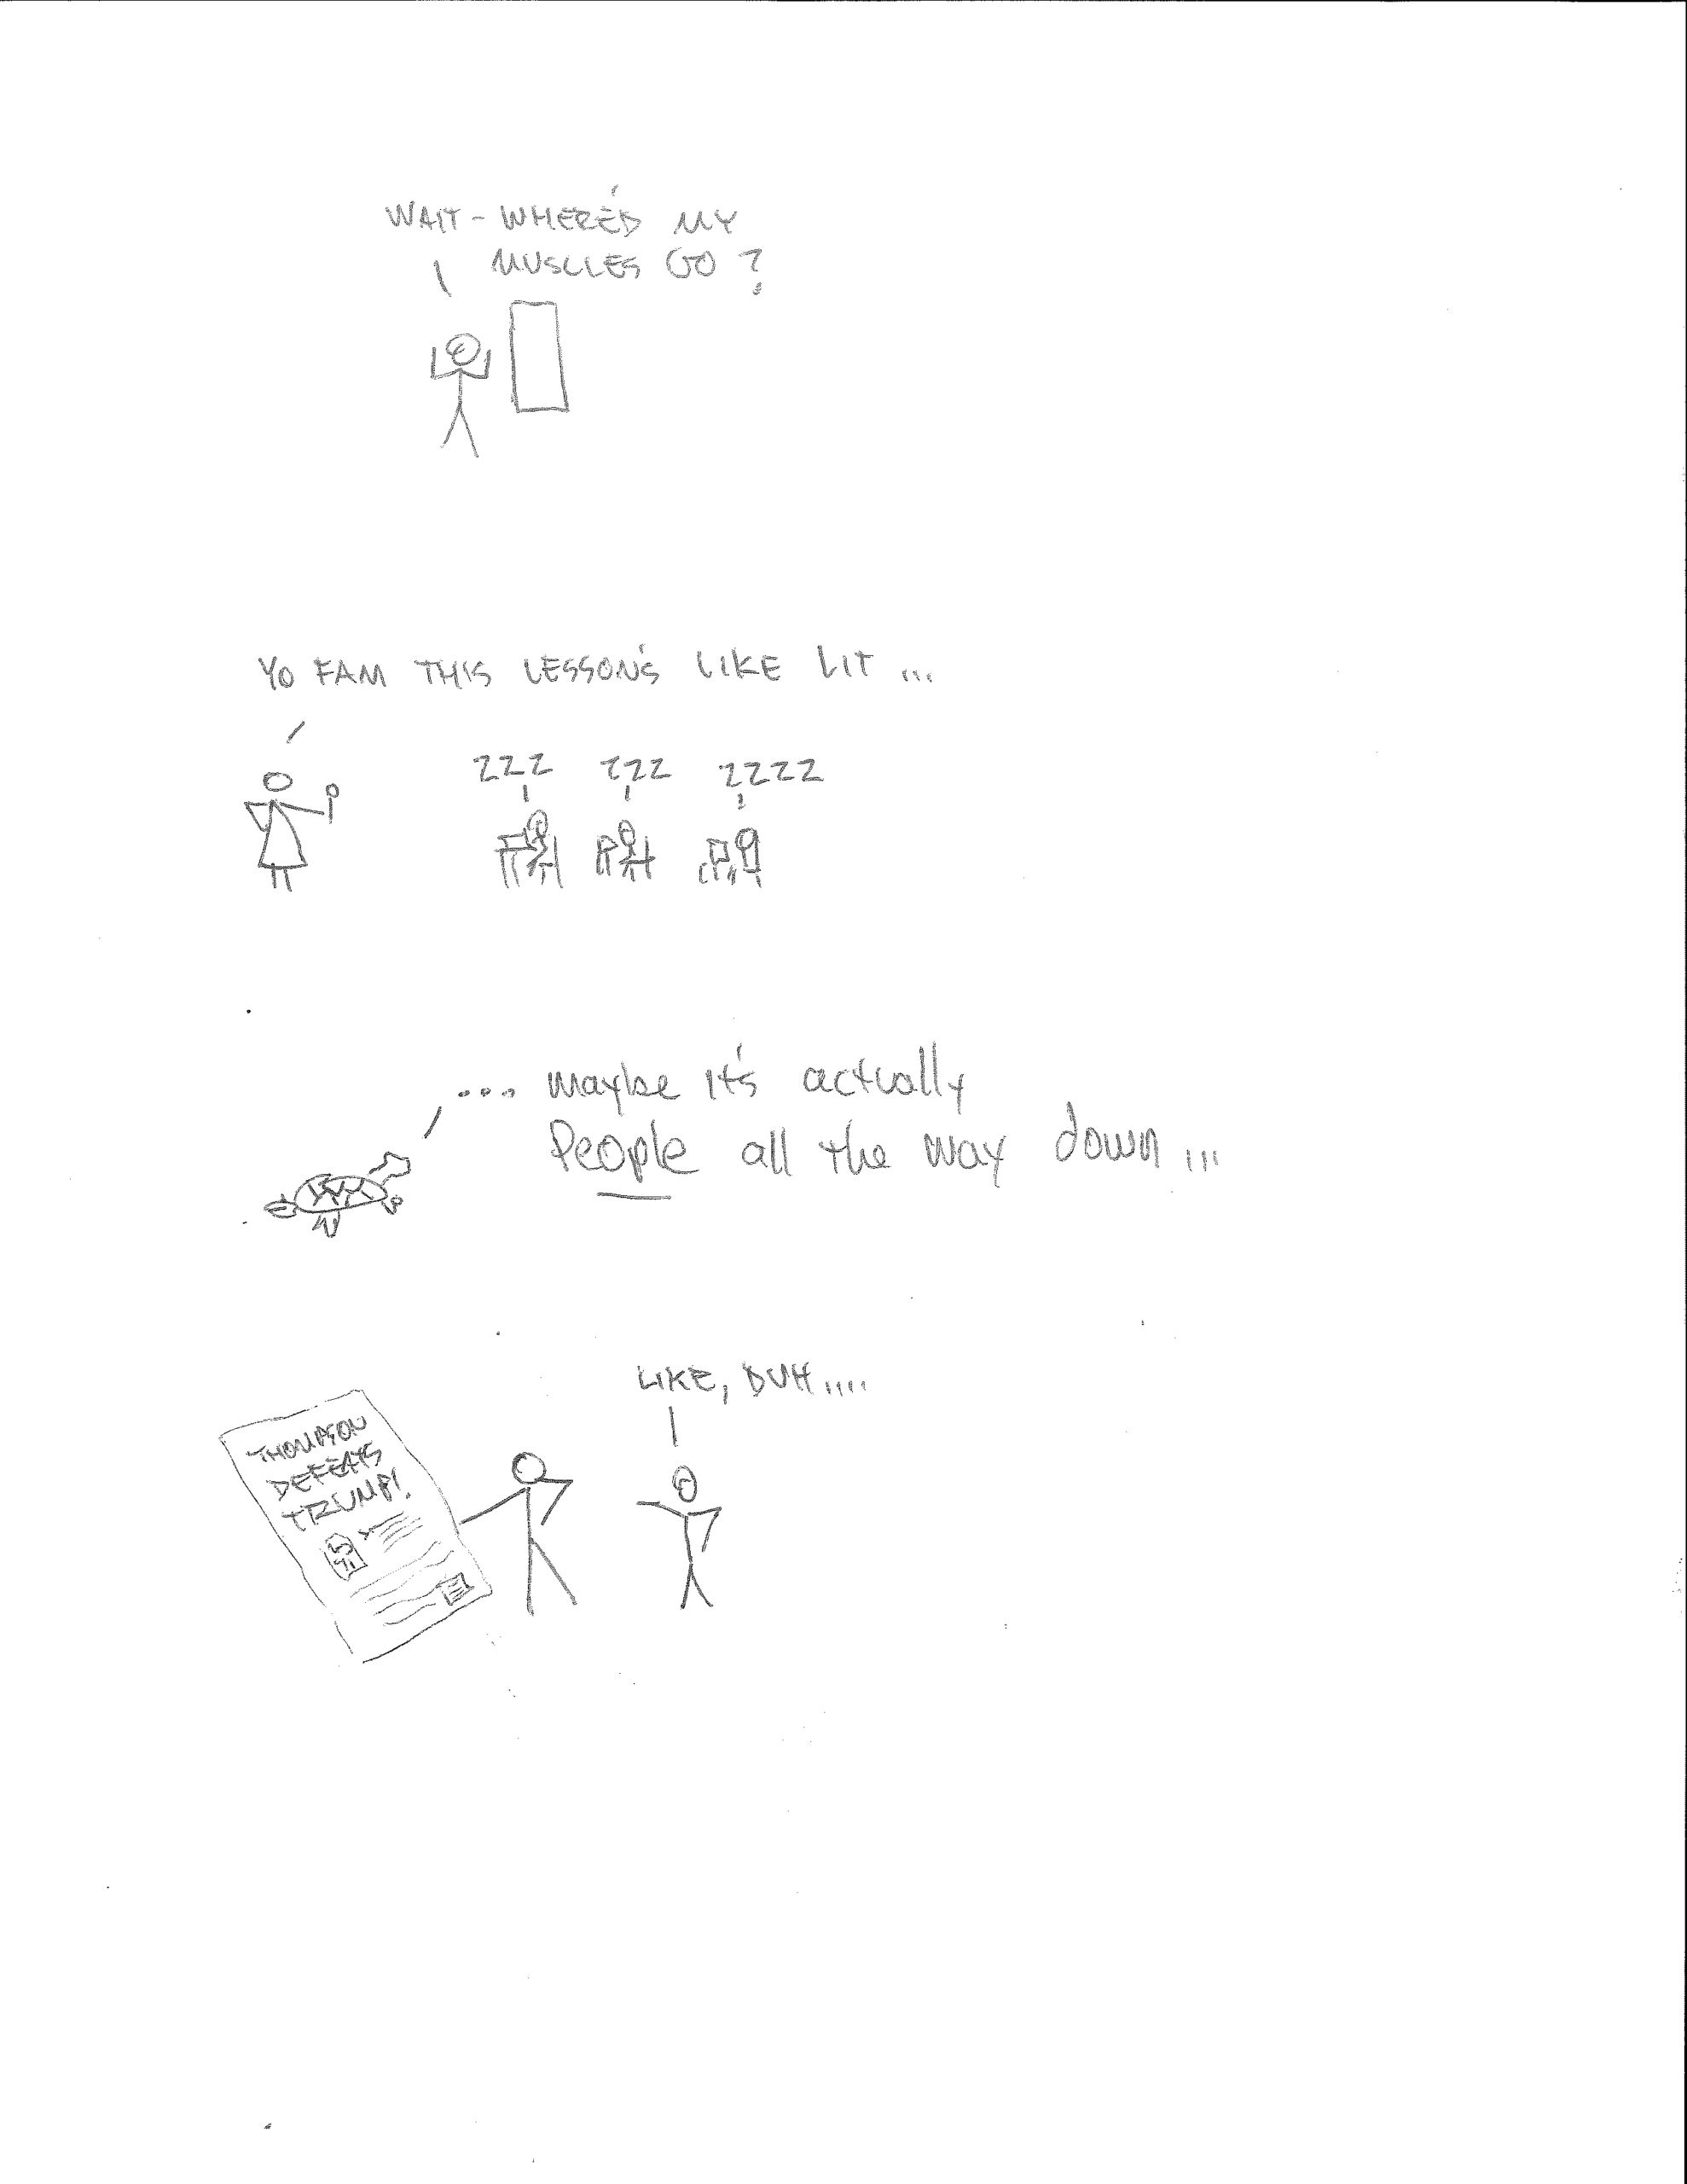 WAIT - WHERE'D MY
MUSCLES GO ?
YO FAM THIS LESSON'S LIKE LIT ...
ZZZ ZZZ ZZZZ
.... maybe it's actually
People all the way down ...
LIKE, DUH ....
THOMPSON
DEFEATS
TRUMP!